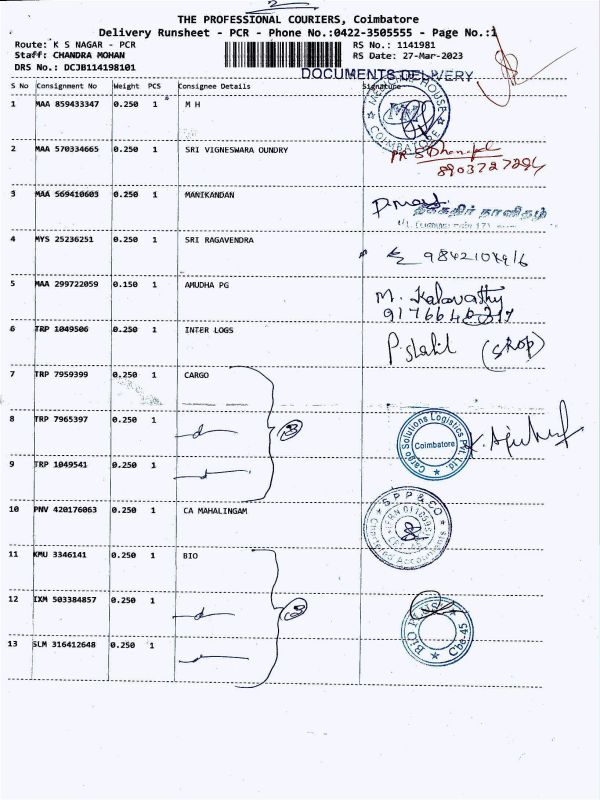 2
THE PROFESSIONAL COURIERS, Coimbatore
Delivery Runsheet - PCR - Phone No.:0422-3505555 - Page No.:1
Route: K S NAGAR - PCR
Staff: CHANDRA MOHAN
DRS No.: DCJB114198101
RS No.: 1141981
RS Date: 27-Mar-2023
DOCUMENTS DELIVERY
S No Consignment No Weight PCS Consignee Details Signature
1 MAA 859433347 0.250 1 M H
HOUSE COIMBATORE
2 MAA 570334665 0.250 1 SRI VIGNESWARA OUNDRY
8903727294
3 MAA 569410603 0.250 1 MANIKANDAN
4 MYS 25236251 0.250 1 SRI RAGAVENDRA
5 MAA 299722059 0.150 1 AMUDHA PG M. Kalavathy
6 TRP 1049506 0.250 1 INTER LOGS
7 TRP 7959399 0.250 1 CARGO
8 TRP 7965397 0.250 1 3
Cargo Solutions Logistics Pvt. Ltd. Coimbatore
9 TRP 1049541 0.250 1
10 PNV 420176063 0.250 1 CA MAHALINGAM
S P P & CO Chartered Accountants
11 KMU 3346141 0.250 1 BIO
12 IXM 503384857 0.250 1 3
Cbe-45
13 SLM 316412648 0.250 1